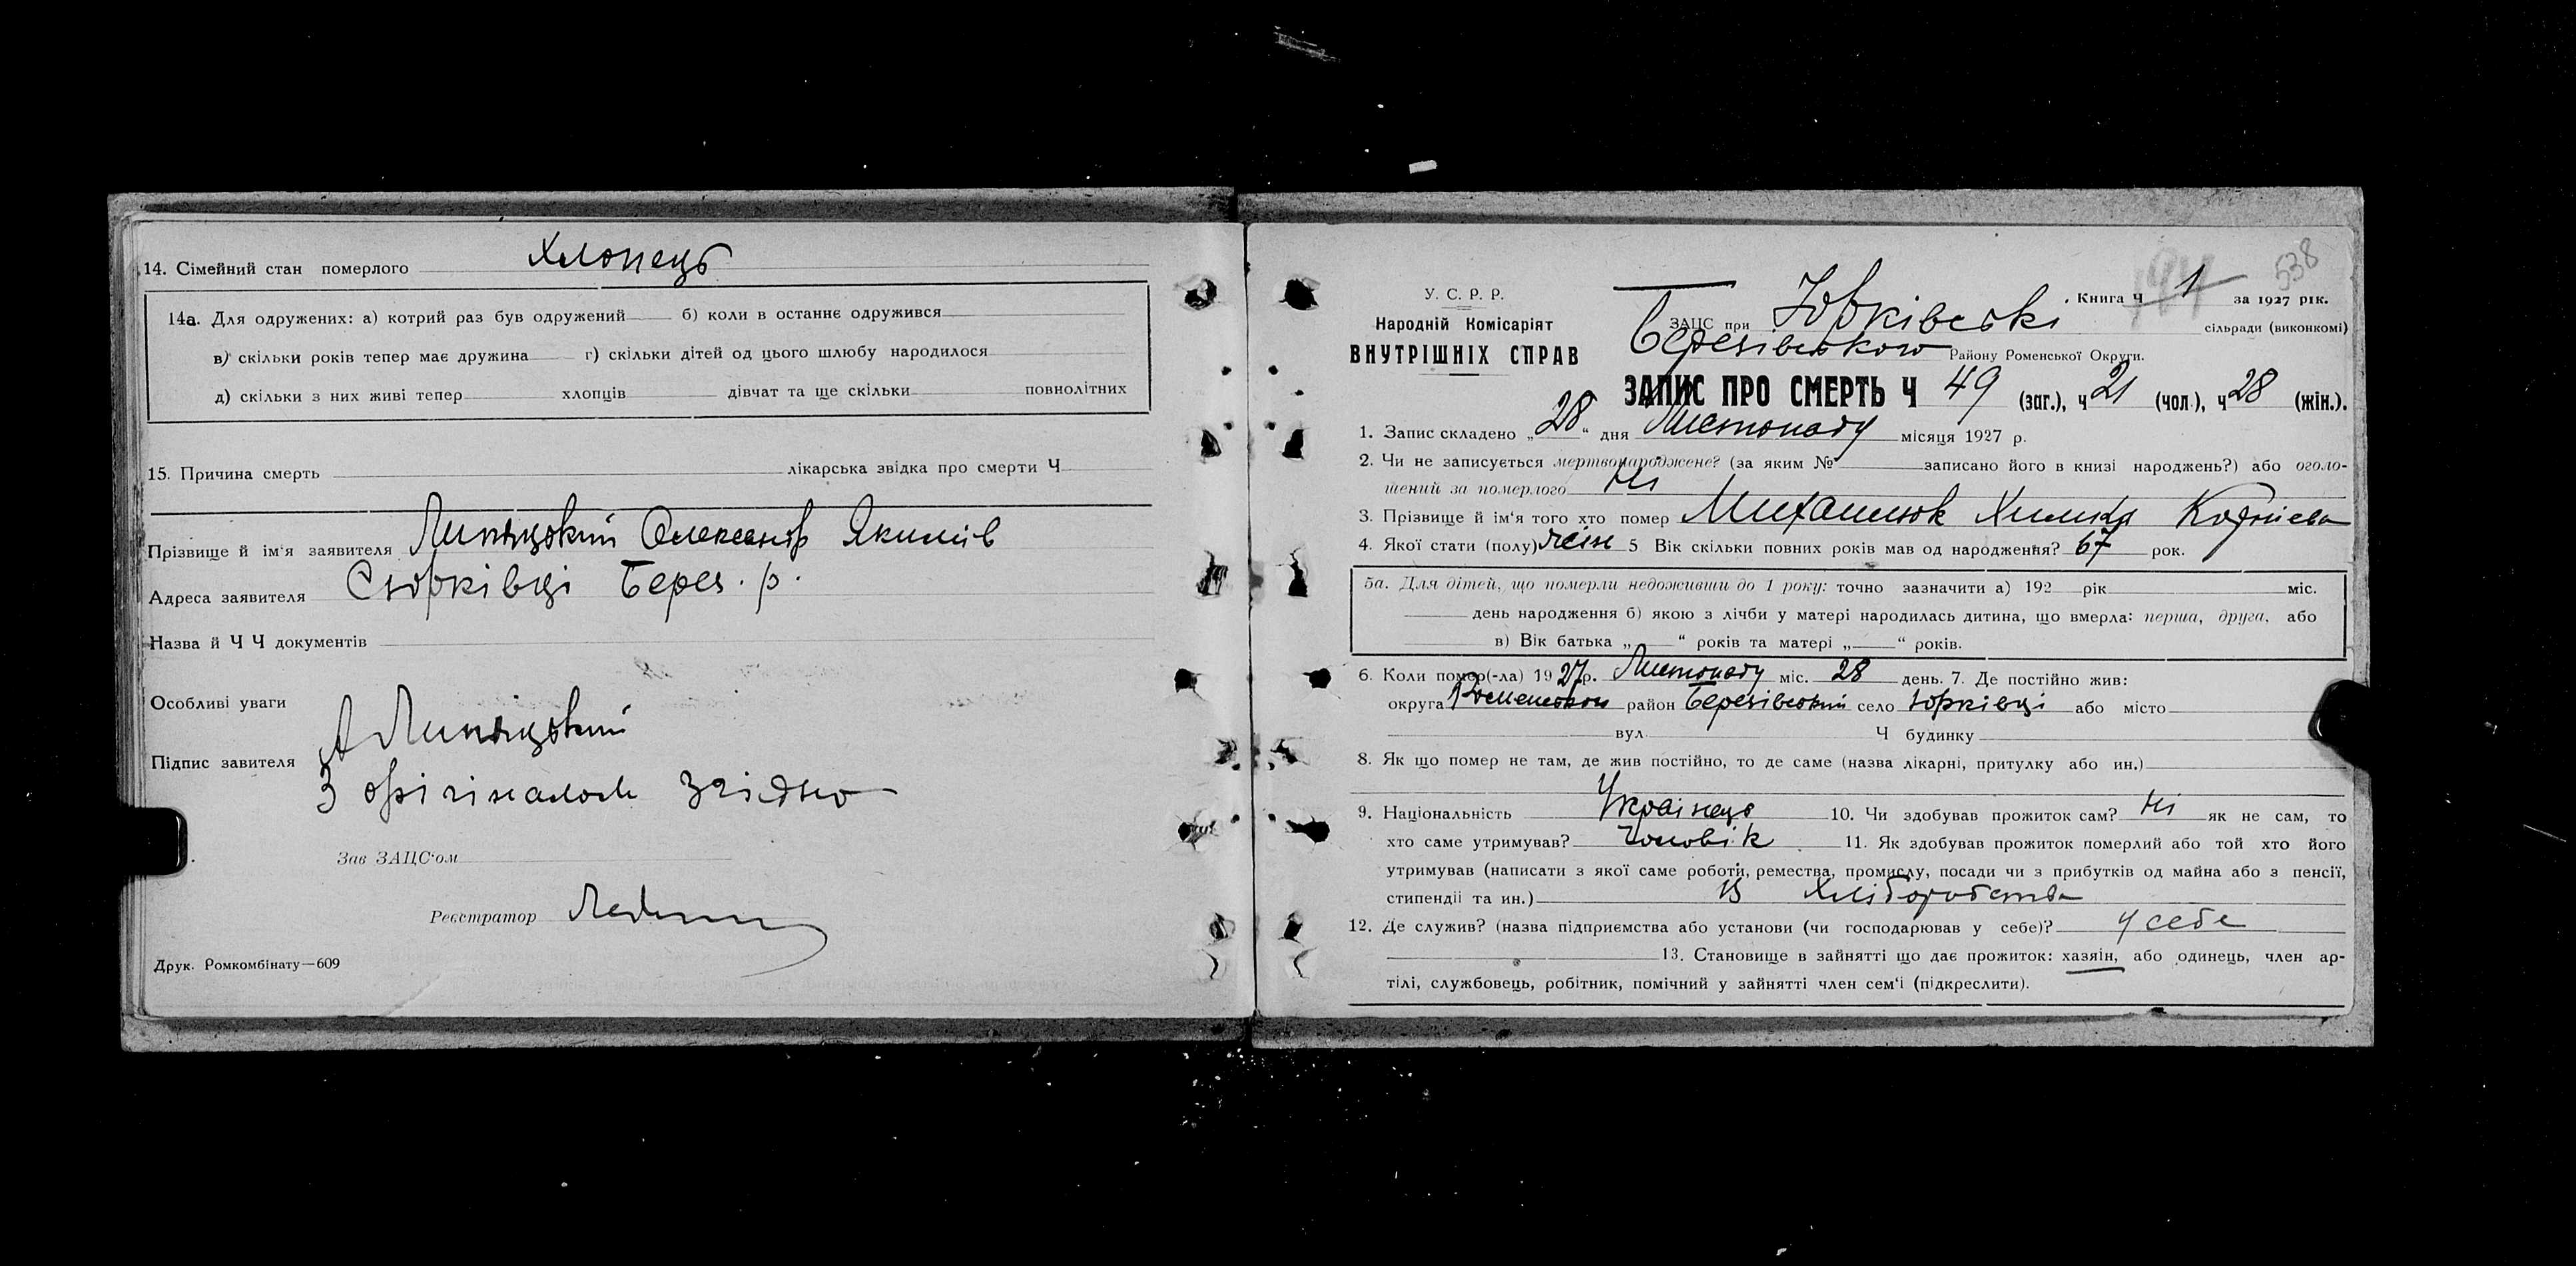 14. Сімейний стан померлого Хлопець
14а. Для одружених: а) котрий раз був одружений б) коли в останнє одружився
в) скільки років тепер має дружина г) скільки дітей од цього шлюбу народилося
д) скільки з них живі тепер хлопців дівчат та ще скільки повнолітних
15. Причина смерть лікарська звідка про смерти Ч
Прізвище й ім'я заявителя Олександр Якимів
Адреса заявителя С Юрківці Берез. р.
Назва й Ч Ч документів
Особливі уваги
Підпис завителя
З орігіналом згідно
Зав ЗАЦС'ом
Реєстратор
Друк. Ромкомбінату—609
538
У. С. Р. Р.
Народній Комісаріят
ВНУТРІШНІХ СПРАВ
Книга Ч 1 за 1927 рік.
ЗАЦС при Юрківські сільради (виконкомі)
Березівського Району Роменської Округи.
ЗАПИС ПРО СМЕРТЬ Ч 49 (заг.), ч 21 (чол.), ч 28 (жін.).
1. Запис складено „28" дня Листопаду місяця 1927 р.
2. Чи не записується мертвонароджене? (за яким № записано його в книзі народжень?) або оголо-
шений за померлого Ні
3. Прізвище й ім'я того хто помер Корніева
4. Якої стати (полу) жін 5 Вік скільки повних років мав од народження? 67 рок.
5а. Для дітей, що померли недоживши до 1 року: точно зазначити а) 192 рік міс.
день народження б) якою з лічби у матері народилась дитина, що вмерла: перша, друга, або
в) Вік батька „ " років та матері „ " років.
6. Коли помер(-ла) 1927 р. Листопаду міс. 28 день. 7. Де постійно жив:
округа Роменською район Березівський село Юрківці або місто
вул Ч будинку
8. Як що помер не там, де жив постійно, то де саме (назва лікарні, притулку або ин.)
9. Національність Українець 10. Чи здобував прожиток сам? Ні як не сам, то
хто саме утримував? Чоловік 11. Як здобував прожиток померлий або той хто його
утримував (написати з якої саме роботи, ремества, промислу, посади чи з прибутків од майна або з пенсії,
стипендії та ин.) Із Хліборобства
12. Де служив? (назва підприємства або установи (чи господарював у себе)? у себе
13. Становище в зайнятті що дає прожиток: хазяін, або одинець, член ар-
тілі, службовець, робітник, помічний у зайнятті член сем'ї (підкреслити).